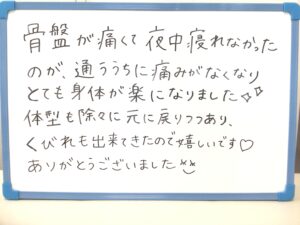 骨盤が痛くて夜中寝れなかった
のが、通ううちに痛みがなくなり
とても身体が楽になりました✧✧
体型も除々に元に戻りつつあり、
くびれも出来てきたので嬉しいです♡
ありがとうございました